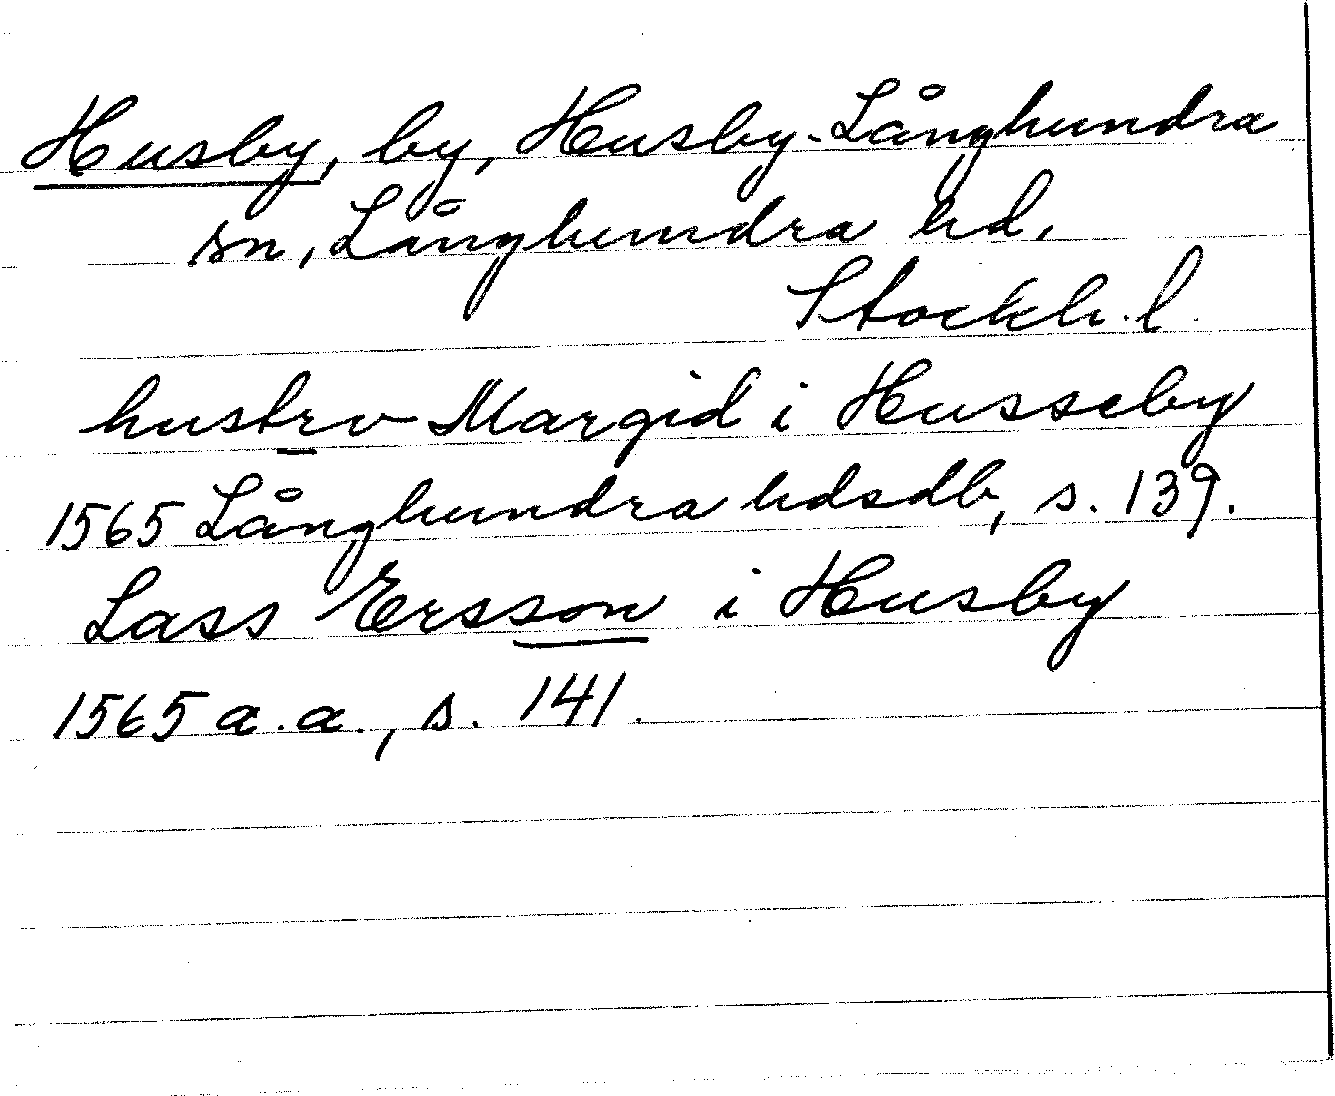 Husby, by, Husby-Långhundra
sn, Långhundra hd,
Stockh. l.
hustrv Margid i Husseby
1565 Långhundra hdsdb, s. 139.
Lass Ersson i Husby
1565 a.a., s. 141.